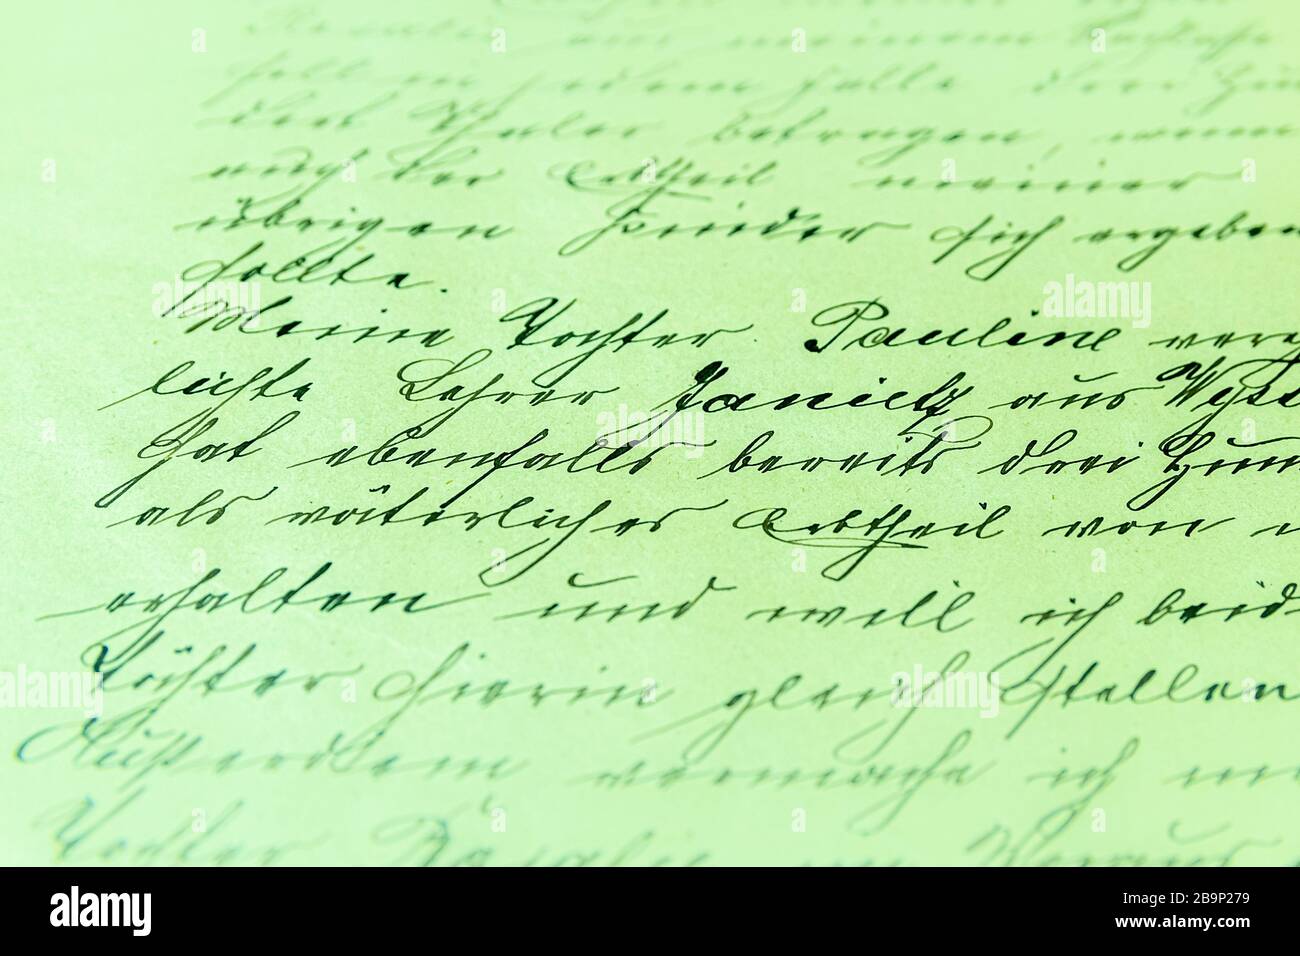 soll in jedem Falle drei Hun
dert Thaler betragen, wenn
auch der Erbtheil meiner
übrigen Kinder sich ergeben
sollte.
Meine Tochter Pauline vereh
lichte Lehrer Janietz aus
hat ebenfalls bereits drei Hun
als väterliches Erbtheil von
erhalten und will ich beid
Töchter hierin gleich stellen
Außerdem vermache ich
Tochter Rosalie im Voraus
alamy
Image ID: 2B9P279
www.alamy.com